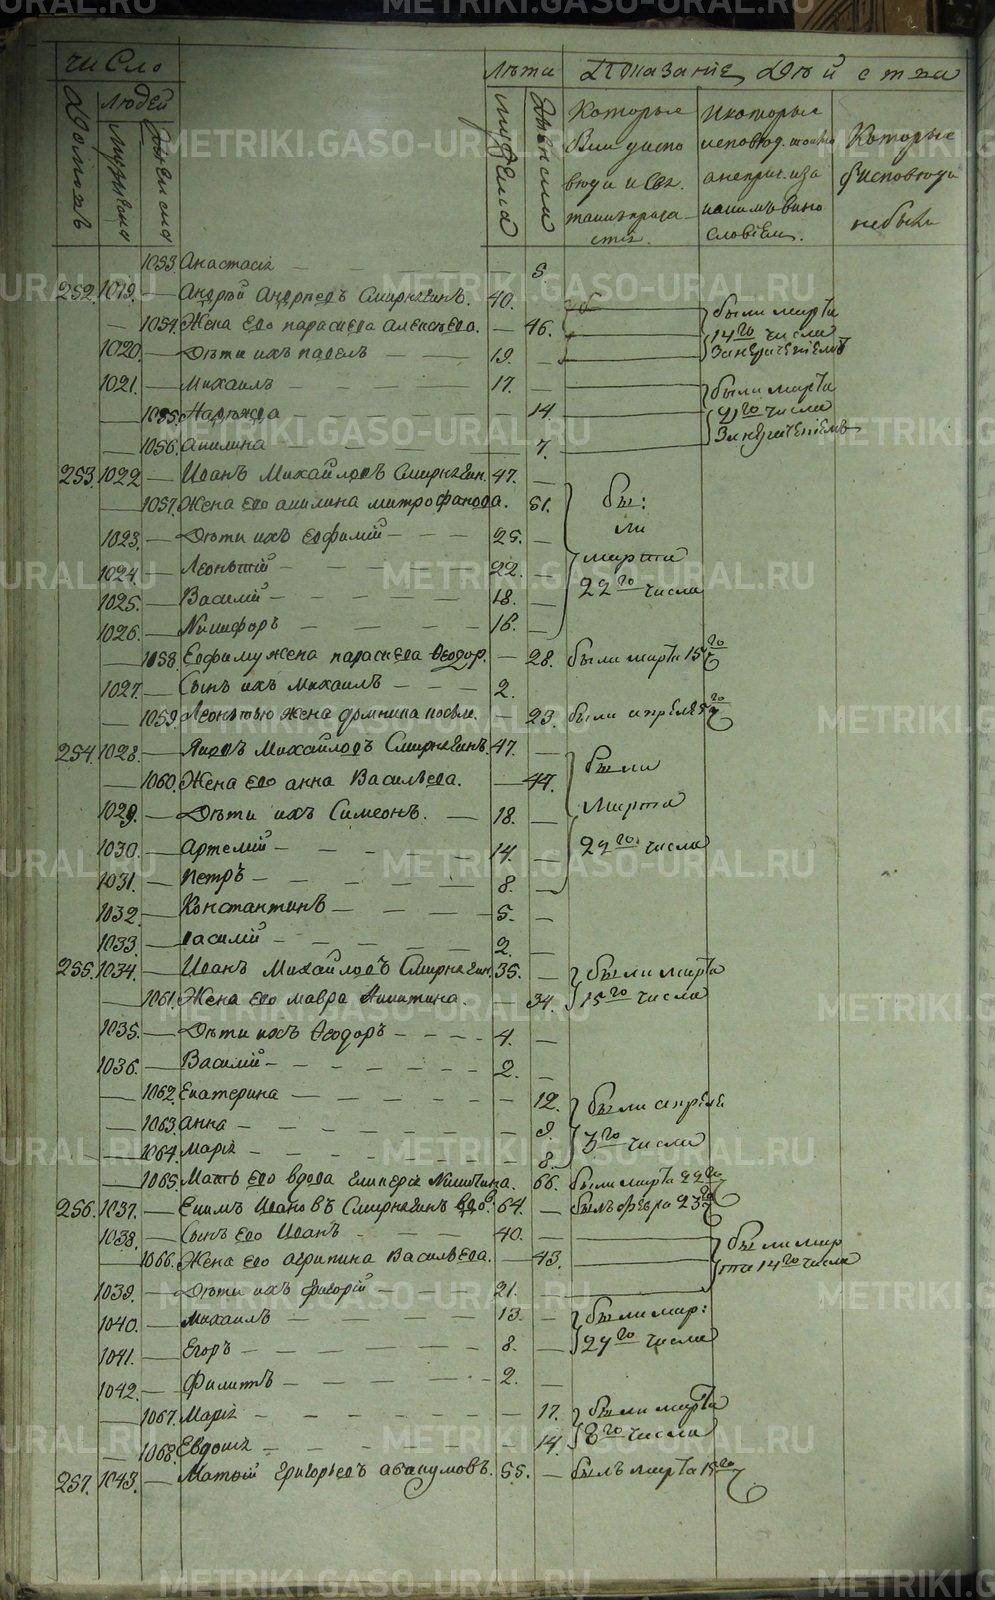 число
Домовъ
людей
мужеска
женска
лѣта
мужеска
женска
Показаніе Дѣйства
Которые были у исповѣди и Св. таинъ прича стіи.
Которые исповѣд. токмо а непричас. и за какимъ вино словіем.
Которые у исповѣди небыли
1053 Анастасія 5.
252. 1019. Андрѣй Андреевъ Смирнягинъ. 40.
1054. Жена его парасковѣа алексѣева. 46.
были марта 14го числа За нерачениемъ
1020. Дѣти ихъ павелъ 19.
1021. Михаилъ 17.
1055. Надѣжда 14
1056. Акилина 7.
были марта 21го числа За нерачениемъ
253. 1022 Иванъ Михайловъ Смирнягин. 47.
1057. Жена его акилина митрофанова. 51.
1023. Дѣти ихъ евфимій 25.
1024. Леонтій 22.
1025. Василій 18.
1026. Никифоръ 16.
бы: ли марта 22го числа
1058. Евфиму жена парасковѣа Ѳеодор. 28. были марта 15го
1027. Сынъ ихъ михаилъ 2.
1059. Леонтью жена домника 23. были апреля 5го
254. 1028. Яковъ Михайловъ Смирнягинъ. 47.
1060. Жена его анна Васильева. 44.
1029. Дѣти ихъ Симеонъ. 18.
1030. Артемій 14.
1031. Петръ 8.
были марта 22го числа
1032. Константинъ 5.
1033. Василій 2.
255. 1034. Иванъ Михайловъ Смирнягин. 35.
1061. Жена его мавра Никитина. 34.
были марта 15го числа
1035. Дѣти ихъ Ѳеодоръ 4.
1036. Василій 2.
1062. Екатерина 12.
1063. анна 9.
1064. Марія 8.
были апреля 3го числа
1065. Мать его вдова Никитина. 66. были марта 22го
256. 1037. Екимъ Ивановъ Смирнягинъ вдо. 64. былъ февра 23го
1038. Сынъ его Иванъ 40.
1066. Жена его агрипина Васильева. 43.
1039. Дѣти ихъ григорій 21.
были мар та 14го числа
1040. Михаилъ 13.
1041. Егоръ 8.
были мар: 29го числа
1042. Филиппъ 2.
1067. Марія 17.
1068. Евдокія 14.
были марта 8го числа
257. 1043. Матвій григорьевъ авакумовъ. 55. былъ марта 15го
METRIKI.GASO-URAL.RU